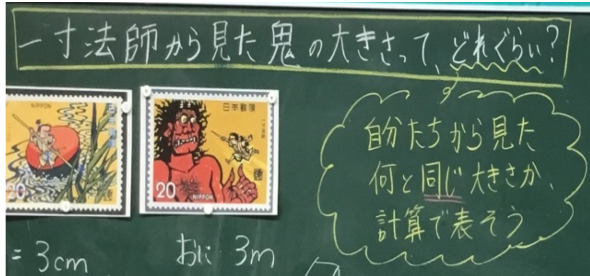 一寸法師から見た鬼の大きさって、どれぐらい?
NIPPON
20
日本郵便
NIPPON
20
自分たちから見た
何と同じ大きさか、
計算で表そう
= 3cm
おに 3m